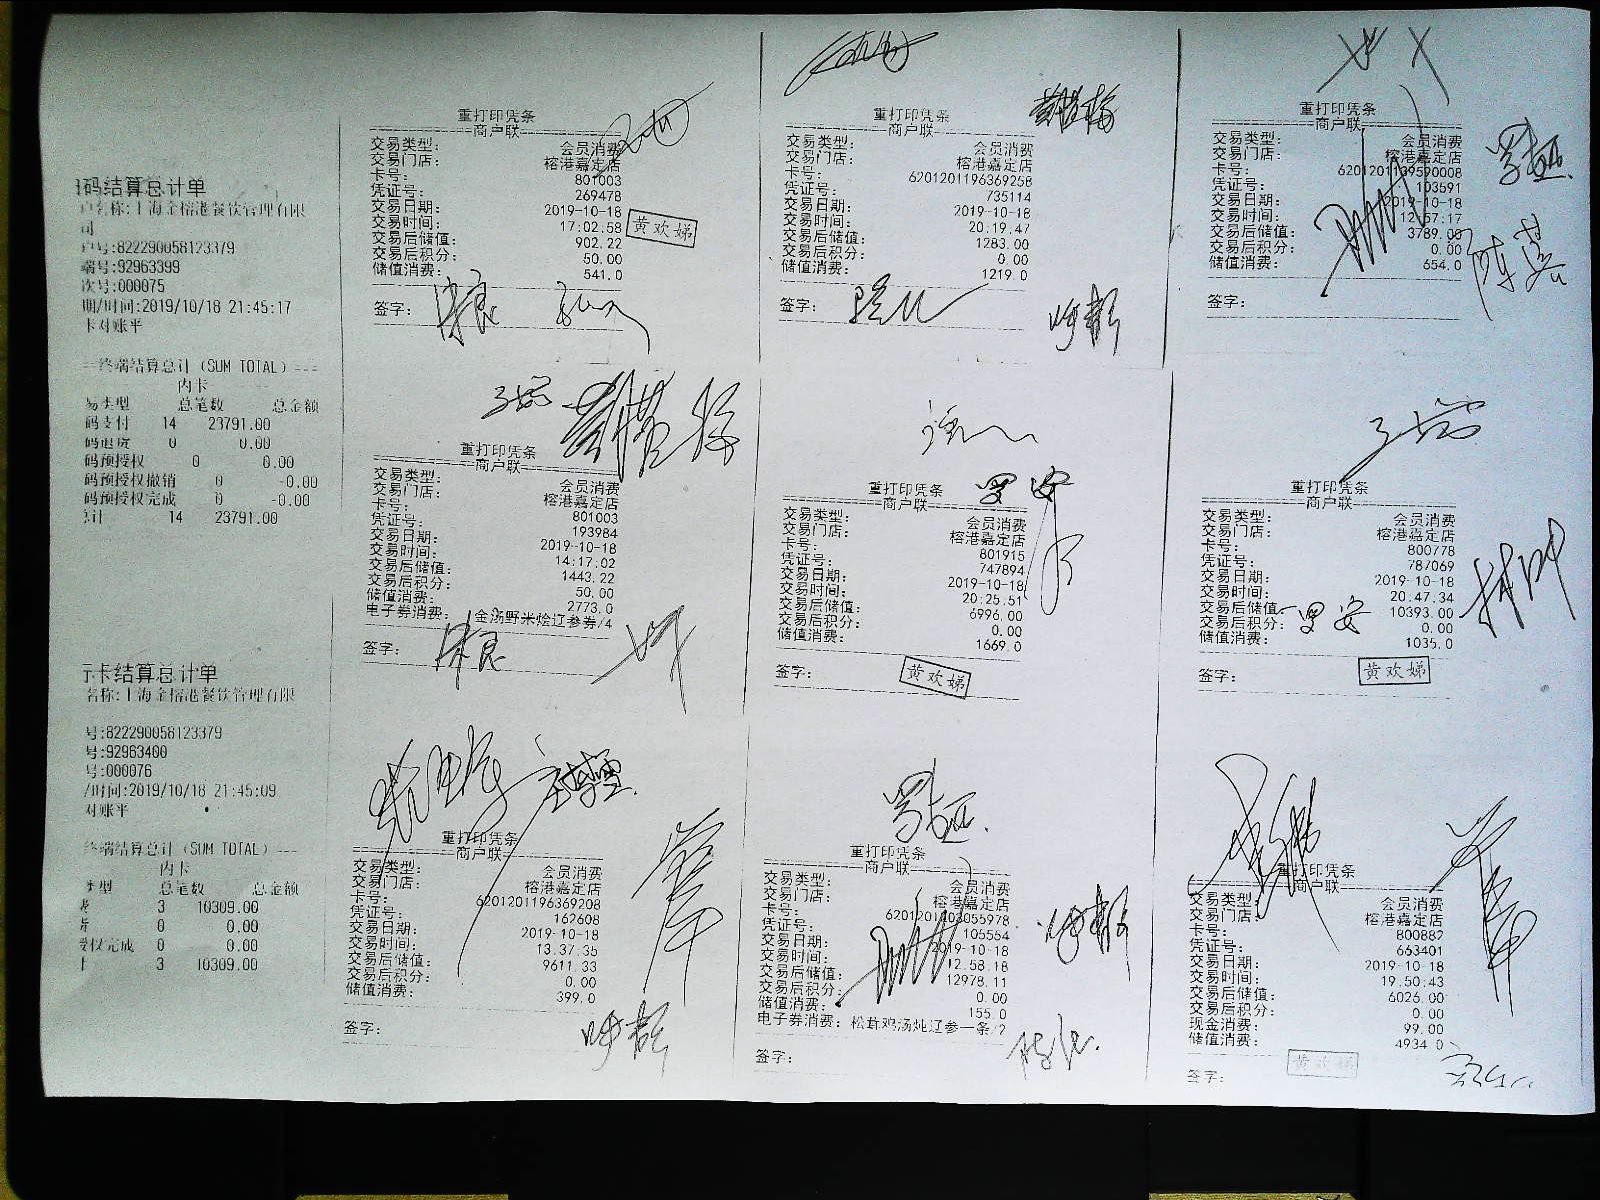 码结算总计单
户名称:上海金榕港餐饮管理有限
司
户号:822290058123379
端号:92963399
次号:000075
期/时间:2019/10/18 21:45:17
卡对账平
终端结算总计 (SUM TOTAL)
内卡
易类型 总笔数 总金额
码支付 14 23791.00
码退货 0 0.00
码预授权 0 0.00
码预授权撤销 0 -0.00
码预授权完成 0 -0.00
总计 14 23791.00
卡结算总计单
名称:上海金榕港餐饮管理有限
号:822290058123379
号:92963400
号:000076
/时间:2019/10/18 21:45:09
对账平
终端结算总计 (SUM TOTAL)
内卡
类型 总笔数 总金额
3 10309.00
0 0.00
授权完成 0 0.00
3 10309.00
重打印凭条
商户联
交易类型: 会员消费
交易门店: 榕港嘉定店
卡号: 801003
凭证号: 269478
交易日期: 2019-10-18
交易时间: 17:02.58
交易后储值: 902.22
交易后积分: 50.00
储值消费: 541.0
黄欢娣
签字:
重打印凭条
商户联
交易类型: 会员消费
交易门店: 榕港嘉定店
卡号: 6201201196369258
凭证号: 735114
交易日期: 2019-10-18
交易时间: 20.19.47
交易后储值: 1283.00
交易后积分: 0.00
储值消费: 1219.0
签字:
重打印凭条
商户联
交易类型: 会员消费
交易门店: 榕港嘉定店
卡号: 6201201139590008
凭证号: 103591
交易日期: 2019-10-18
交易时间: 12.57.17
交易后储值: 3789.00
交易后积分: 0.00
储值消费: 654.0
签字:
重打印凭条
商户联
交易类型: 会员消费
交易门店: 榕港嘉定店
卡号: 801003
凭证号: 193984
交易日期: 2019-10-18
交易时间: 14:17.02
交易后储值: 1443.22
交易后积分: 50.00
储值消费: 2773.0
电子券消费: 金汤野米烩辽参券/4
签字:
重打印凭条
商户联
罗安
交易类型: 会员消费
交易门店: 榕港嘉定店
卡号: 801915
凭证号: 747894
交易日期: 2019-10-18
交易时间: 20:25.51
交易后储值: 6996.00
交易后积分: 0.00
储值消费: 1669.0
签字: 黄欢娣
重打印凭条
商户联
交易类型: 会员消费
交易门店: 榕港嘉定店
卡号: 800778
凭证号: 787069
交易日期: 2019-10-18
交易时间: 20.47.34
交易后储值: 10393.00
交易后积分: 0.00
罗安
储值消费: 1035.0
签字: 黄欢娣
重打印凭条
商户联
交易类型: 会员消费
交易门店: 榕港嘉定店
卡号: 6201201196369208
凭证号: 162608
交易日期: 2019-10-18
交易时间: 13.37.35
交易后储值: 9611.33
交易后积分: 0.00
储值消费: 399.0
签字:
重打印凭条
商户联
交易类型: 会员消费
交易门店: 榕港嘉定店
卡号: 6201201403055978
凭证号: 105554
交易日期: 2019-10-18
交易时间: 12.58.18
交易后储值: 12978.11
交易后积分: 0.00
储值消费: 155.0
电子券消费: 松茸鸡汤炖辽参一条/2
签字:
重打印凭条
商户联
交易类型: 会员消费
交易门店: 榕港嘉定店
卡号: 800882
凭证号: 663401
交易日期: 2019-10-18
交易时间: 19.50:43
交易后储值: 6026.00
交易后积分: 0.00
现金消费: 99.00
储值消费: 4934.0
签字: 黄欢娣